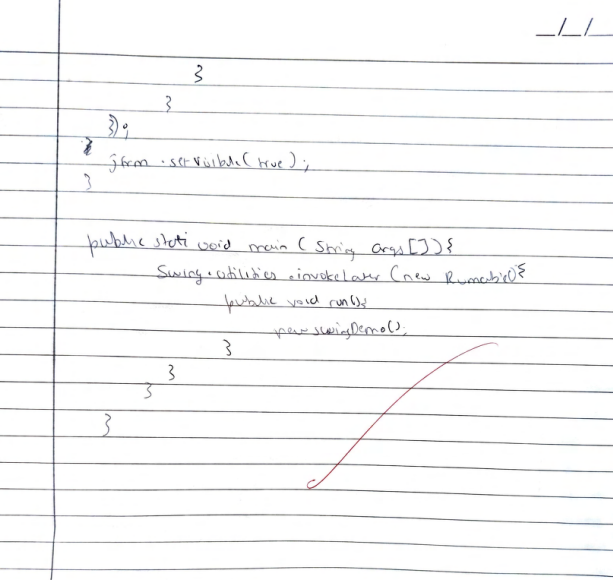 _/_/_
}
}
});
}
jfrm.setVisible(true);
}
public static void main (String args[]){
Swing.utilities.invokeLater (new Runnable(){
public void run(){
new swingDemo();
}
}
}
}